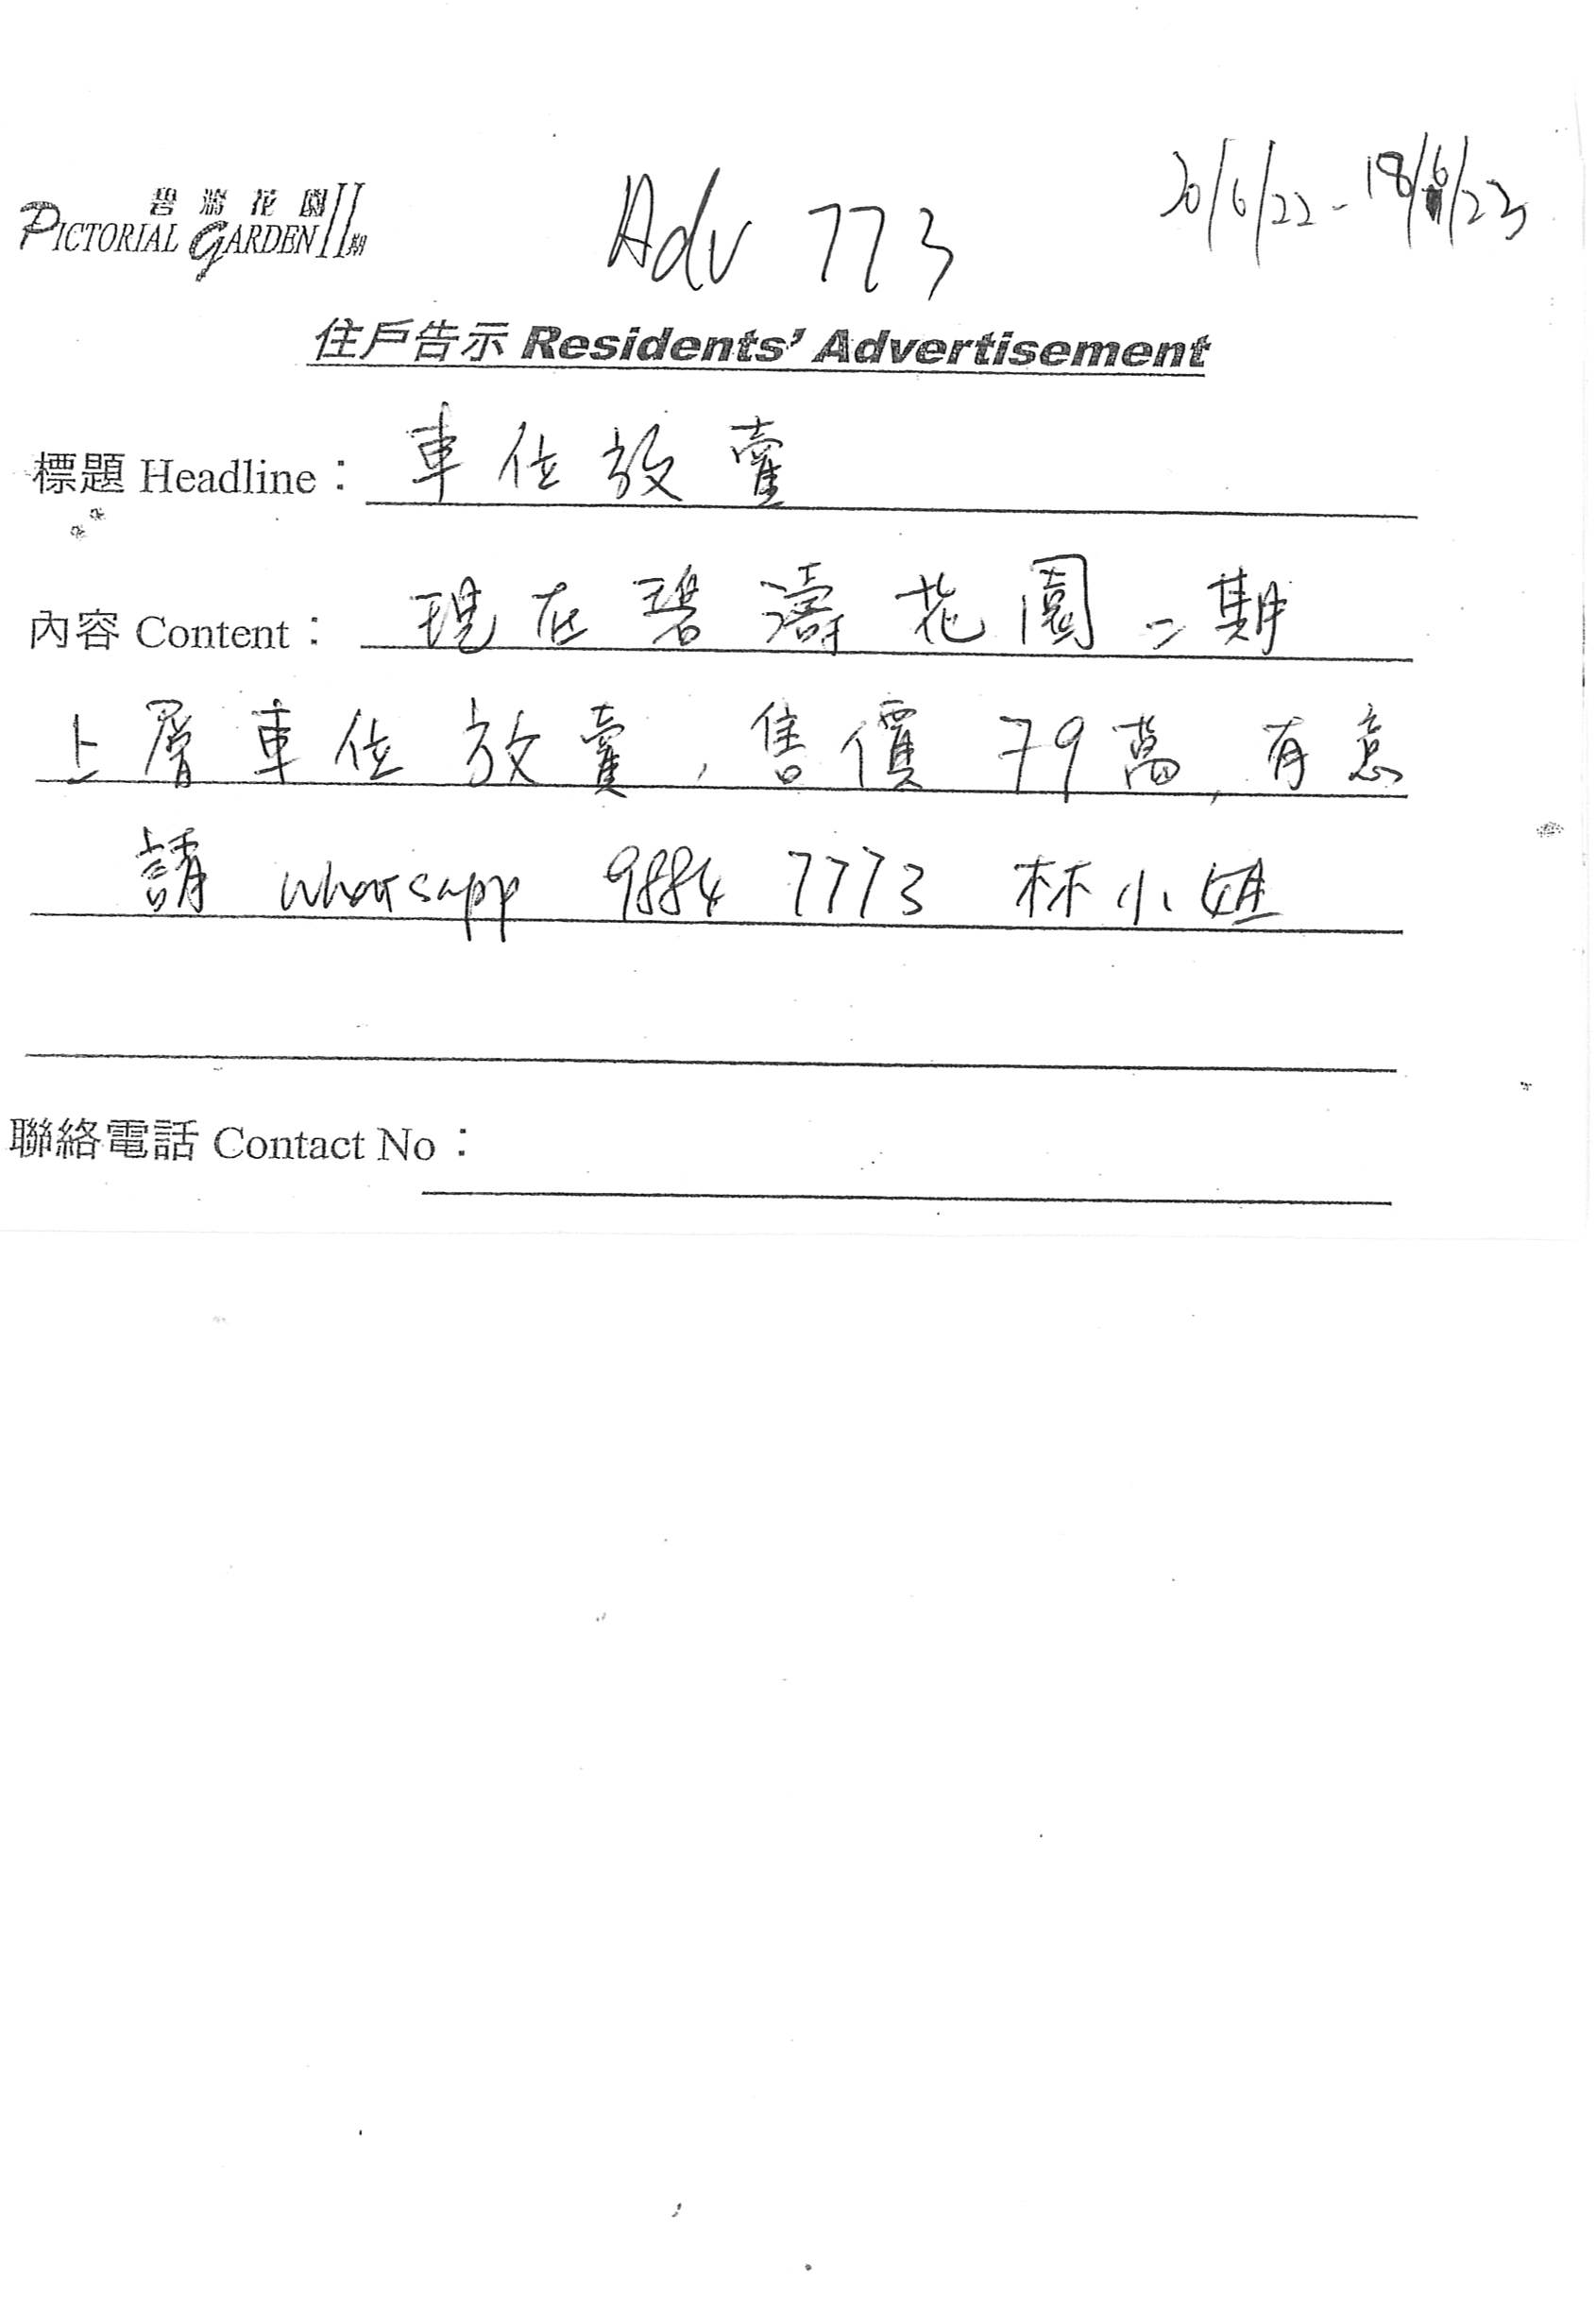 碧濤花園
PICTORIAL GARDEN II期
Adv 773
20/6/22 - 18/6/23
住戶告示 Residents' Advertisement
標題 Headline： 車位放賣
內容 Content： 現在碧濤花園二期
上層車位放賣，售價79萬，有意
請 whatsapp 9884 7773 林小姐
聯絡電話 Contact No：